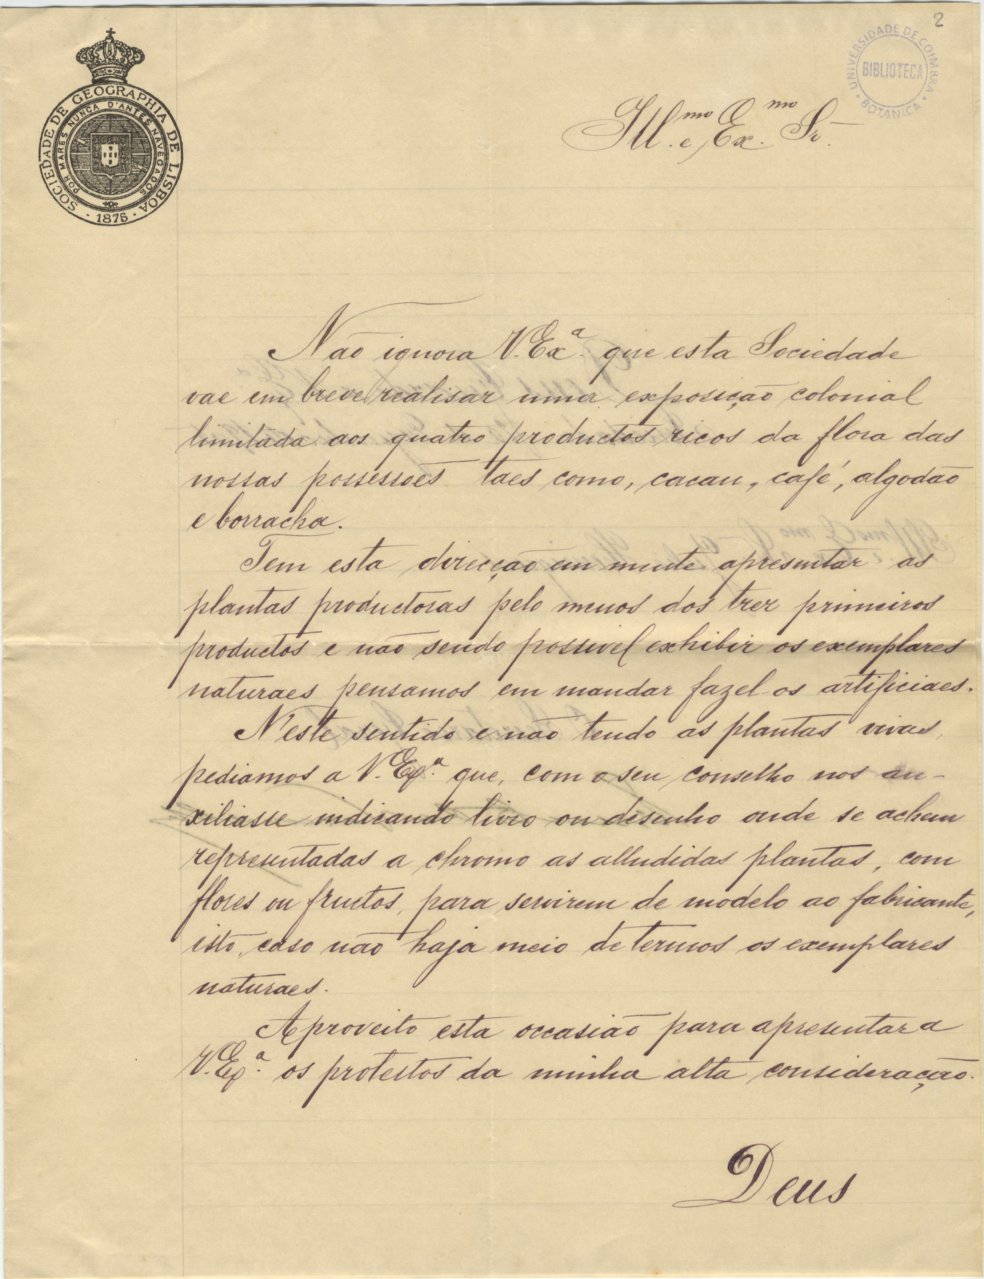 2
SOCIEDADE DE GEOGRAPHIA DE LISBOA
POR MARES NUNCA D'ANTES NAVEGADOS
· 1875 ·
UNIVERSIDADE DE COIMBRA
BIBLIOTECA
· BOTANICA ·
Ill.mo e Ex.mo Sr.
Não ignora V. Ex.a que esta Sociedade
vae em breve realisar uma exposição colonial
limitada aos quatro productos ricos da flora das
nossas possessões taes como, cacau, café, algodão
e borracha.
Tem esta direcção em mente apresentar as
plantas productoras pelo menos dos trez primeiros
productos e não sendo possivel exhibir os exemplares
naturaes pensamos em mandar fazel-os artificiaes.
N'este sentido e não tendo as plantas vivas,
pediamos a V. Ex.a que, com o seu conselho nos au-
xiliasse indicando livro ou desenho onde se achem
representadas a chromo as alludidas plantas, com
flores ou fructos, para servirem de modelo ao fabricante,
isto, caso não haja meio de termos os exemplares
naturaes.
Aproveito esta occasião para apresentar a
V. Ex.a os protestos da minha alta consideração.
Deus